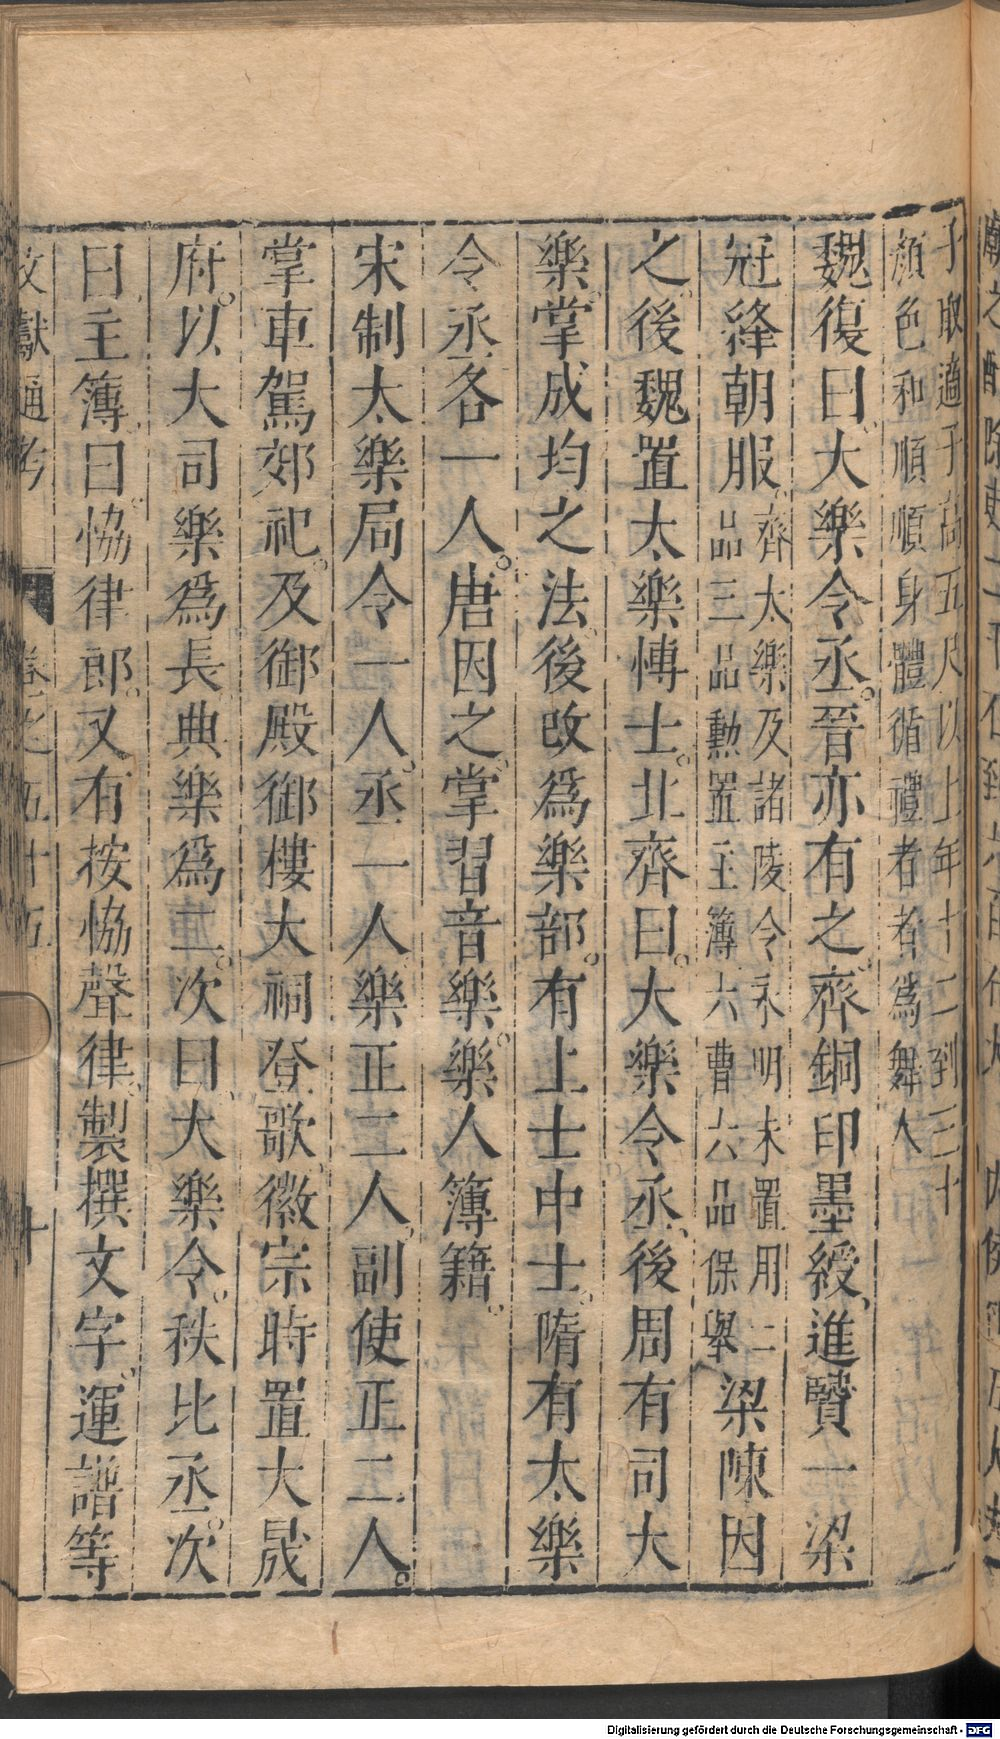 子取適子高五尺以上年十二到三十
顏色和順順身體循禮者者爲舞人
魏復曰大樂令丞晉亦有之齊銅印墨綬進賢一梁
冠絳朝服齊太樂及諸陵令永明末置用二
品三品勳置主簿六曹六品保舉梁陳因
之後魏置太樂博士北齊曰大樂令丞後周有司大
樂掌成均之法後改爲樂部有上士中士隋有太樂
令丞各一人唐因之掌習音樂樂人簿籍
宋制太樂局令一人丞一人樂正二人副使正二人
掌車駕郊祀及御殿御樓大祠登歌徽宗時置大晟
府以大司樂爲長典樂爲二次曰大樂令秩比丞次
曰主簿曰恊律郎又有按恊聲律製撰文字運譜等
文獻通考 卷之五十五 十
Digitalisierung gefördert durch die Deutsche Forschungsgemeinschaft - DFG